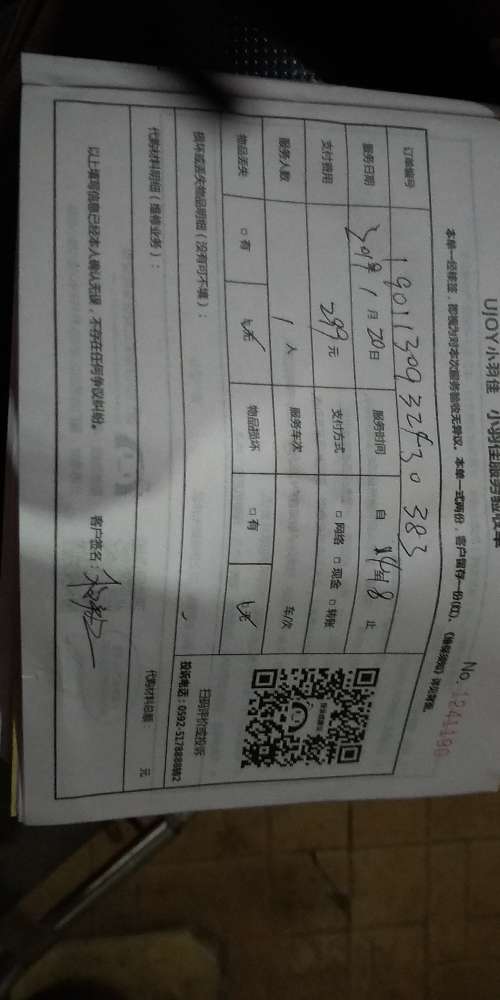 UJOY小羽佳 小羽佳服务验收单
No.1241190
本单一经核签，即视为对本次服务验收无异议。本单一式两份，客户留存一份(XX)。
订单编号 1901130932430383
服务日期 2019年1月20日 服务时间 自 14至18 止
支付费用 299元 支付方式 □网络 □现金 □转账
服务人数 1人 服务车次 车/次
物品丢失 □有 ☑无 物品损坏 □有 ☑无
扫码评价或投诉
投诉电话：0592-5178888转2
损坏或丢失物品明细（没有可不填）：
代购材料明细（维修业务）：
代购材料总额： 元
以上填写信息已经本人确认无误，不存在任何争议纠纷。 客户签名：